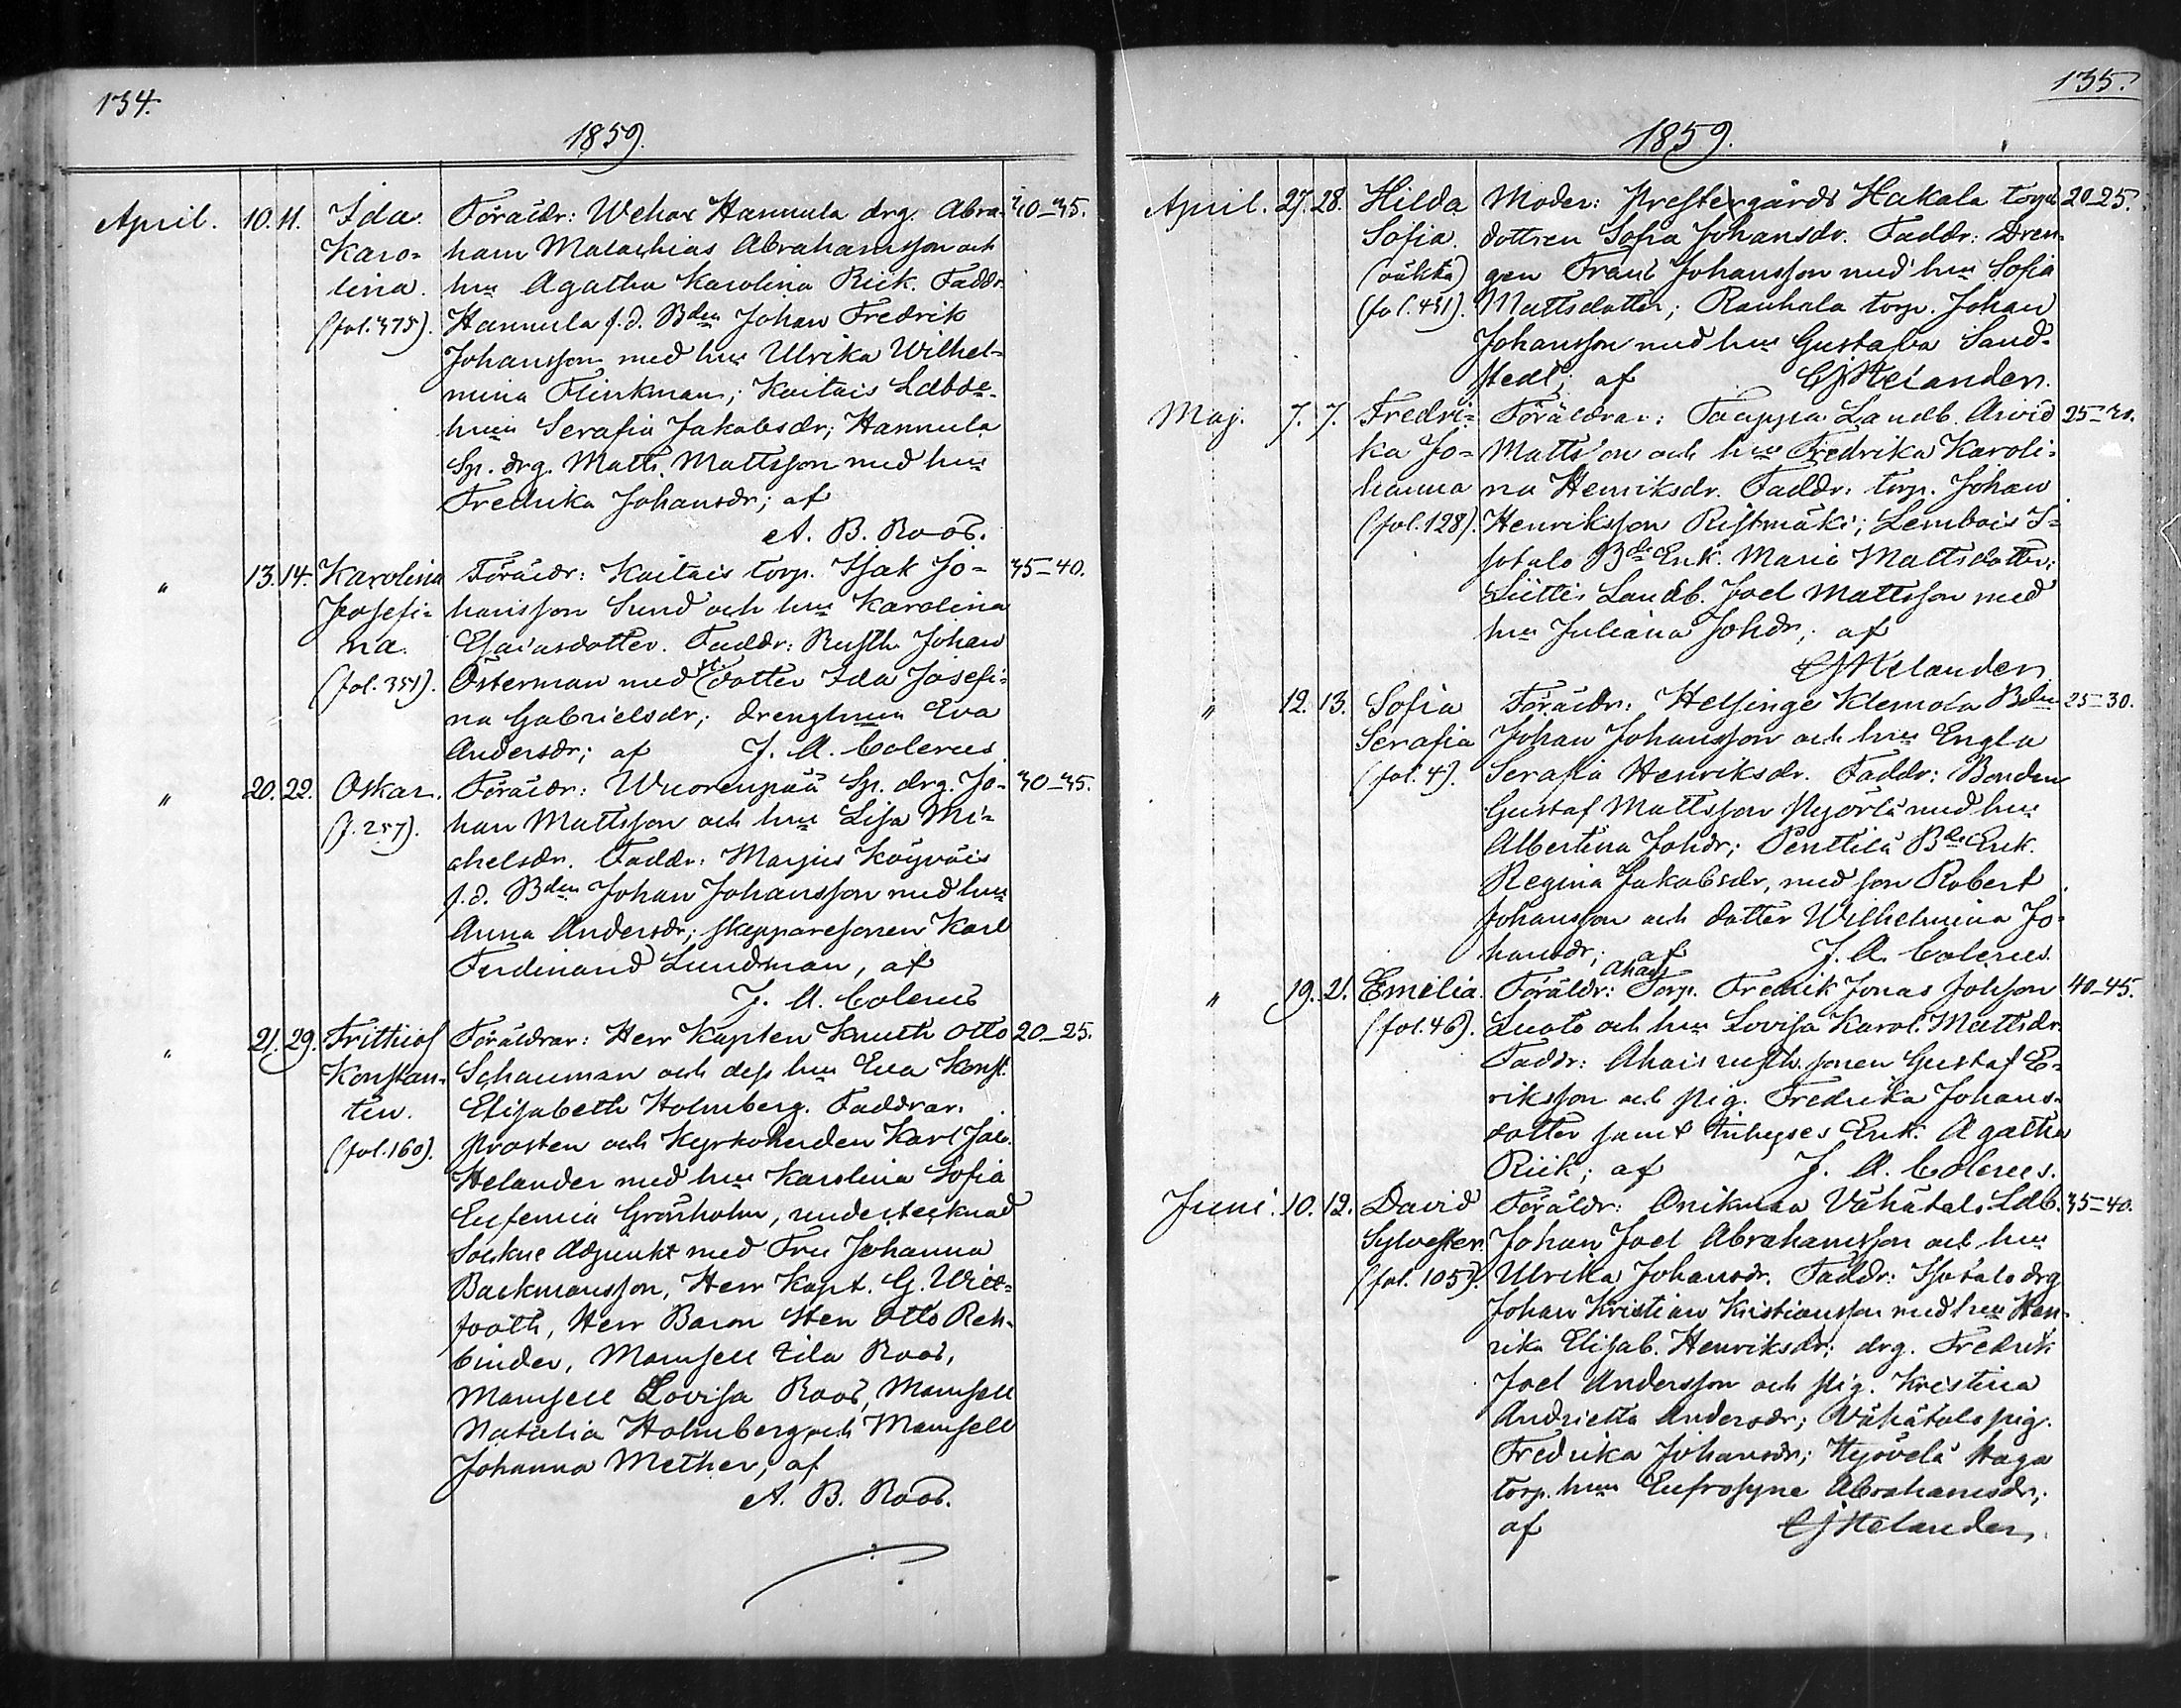 134.
1859.
April. 10. 11. Ida Föräldr: Wehax Hannula drg. Abra- 30–35.
Karo- ham Malachias Abrahamsson och
lina. hu Agatha Karolina Rick. Faddr.
(fol. 375). Hannula f.d. Bden Johan Fredrik
Johansson med hu Ulrika Wilhel-
mina Flinkman; Kaitais Ldbds-
hun Serafia Jakobsdr; Hannula
Sp. drg. Matts Mattsson med hu
Fredrika Johansdr; af
A. B. Roos.
" 13. 14. Karolina Föräldr: Kaitais torp. Isak Jo- 35–40.
Josefi- hansson Sund och hu Karolina
na. Esaiasdotter. Faddr: Rusth. Johan
(fol. 351). Österman med dotter Ida Josefi-
na Gabrielsdr; drenghun Eva
Andersdr; af J. A. Colerus
" 20. 22. Oskar. Föräldr: Wuorenpää Sp. drg. Jo- 30–35.
(f. 257). han Mattsson och hu Lisa Mi-
chelsdr. Faddr: Marjus Köyvöis
f.d. Bden Johan Johansson med hu
Anna Andersdr; skepparesonen Karl
Ferdinand Lundman, af
J. A. Colerus
" 21. 29. Frithiof Föräldrar: Herr Kapten Knuth Otto 20–25.
Konstan- Schauman och dess hu Eva Konst.
tin. Elisabeth Holmberg. Faddrar.
(fol. 160). Prosten och Kyrkoherden Karl Jak.
Helander med hu Karolina Sofia
Eufemia Grönholm, undertecknad
Sockne Adjunkt med Fru Johanna
Backmansson, Herr Kapt. G. Wit-
footh, Herr Baron Sten Otto Reh-
binder, Mamsell Lila Roos,
Mamsell Lovisa Roos, Mamsell
Natalia Holmberg och Mamsell
Johanna Mether, af
A. B. Roos.
135.
1859.
April. 27. 28. Hilda Moder: Prestegårds Hakala torp 20–25.
Sofia. dottren Sofia Johansdr. Faddr: Dren-
(oäkta) gen Frans Johansson med hu Sofia
(fol. 451). Mattsdotter; Rauhala torp. Johan
Johansson med hu Gustafva Sand-
stedt; af CJHelander.
Maj. 7. 7. Fredri- Föräldrar: Tauppa Landb. Arvid 25–30.
ka Jo- Mattsson och hu Fredrika Karoli-
hanna na Henriksdr. Faddr: torp. Johan
(fol. 128). Henriksson Ristmäki; Lembois I-
sotalo Bde Enk. Maria Mattsdotter;
Liittis Landb. Joel Mattsson med
hu Juliana Johdr; af
CJHelander
" 12. 13. Sofia Föräldr: Helsinge Klemola Bden 25–30.
Serafia Johan Johansson och hu Engla
(fol. 4). Serafia Henriksdr. Faddr: Bonden
Gustaf Mattsson Pyörlä med hu
Albertina Johdr; Penttilä Bde Enk.
Regina Jakobsdr, med son Robert
Johansson och dotter Wilhelmina Jo-
hansdr; af J. A. Colerus.
" 19. 21. Emelia. Föräldr: Ahais Torp. Fredrik Jonas Johsson 40–45.
(fol. 46). Luoto och hu Lovisa Karol. Mattsdr.
Faddr: Ahais rusth. sonen Gustaf E-
riksson och pig. Fredrika Johans-
dotter samt inhyses Enk. Agatha
Riik; af J. A. Colerus.
Juni. 10. 12. David Föräldr: Onikmaa Vähätalo Ldb. 35–40.
Sylvester. Johan Joel Abrahamsson och hu
(fol. 105). Ulrika Johansdr. Faddr: Isotalo drg
Johan Kristian Kristiansson med hu Hen-
rika Elisab. Henriksdr; drg. Fredrik
Joel Andersson och pig. Kristina
Andrietta Andersdr; Vähätalo pig.
Fredrika Johansdr; Hyövelä Haga
torp. hun Eufrosyne Abrahamsdr;
af CJHelander.